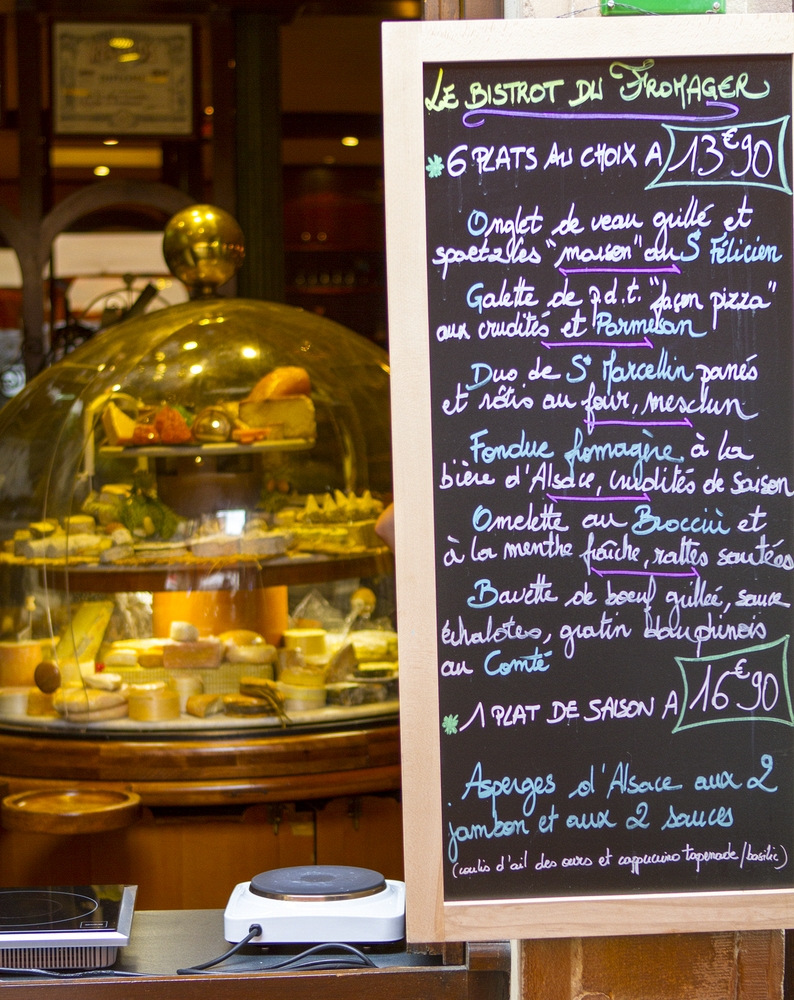 LE BISTROT DU FROMAGER
* 6 PLATS AU CHOIX A 13€90
Onglet de veau grillé et
spaetzles "maison" au St Félicien
Galette de p.d.t. "façon pizza"
aux crudités et Parmesan
Duo de St Marcellin panés
et rôtis au four, mesclun
Fondue fromagère à la
bière d'Alsace, crudités de saison
Omelette au Brocciù et
à la menthe fraîche, rattes sautées
Bavette de boeuf grillée, sauce
échalotes, gratin dauphinois
au Comté
* 1 PLAT DE SAISON A 16€90
Asperges d'Alsace aux 2
jambon et aux 2 sauces
(coulis d'ail des ours et cappuccino tapenade/basilic)